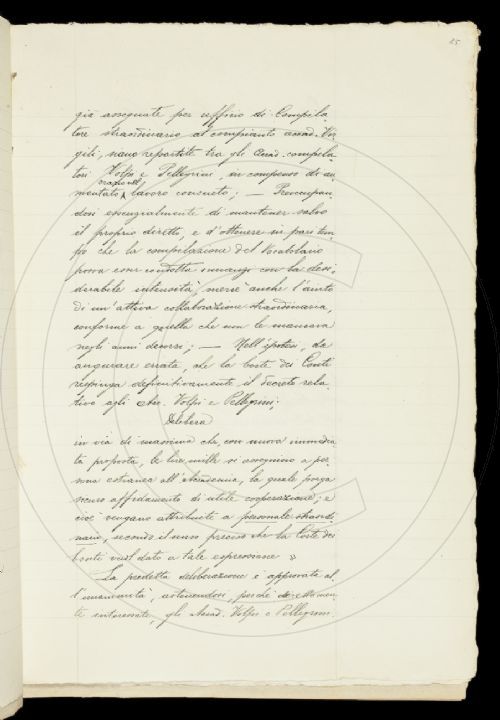 25
già assegnate per ufficio di Compila-
tore straordinario al compianto accad. Vir-
gili, siano repartite tra gli Accad. compila-
tori Volpi e Pellegrini, in compenso di au-
mentato lavoro consueto; — Preoccupan-
dosi egualmente di mantener salvo
il proprio diretto, e d'ottenere in pari tem-
po che la compilazione del Vocabolario
possa esser condotta innanzi con la desi-
derabile intensità, mercè anche l'aiuto
di un'attiva collaborazione straordinaria,
conforme a quella che non le mancava
negli anni decorsi; — Nell'ipotesi, da
augurare errata, che la Corte dei Conti
respinga definitivamente il decreto rela-
tivo agli Acc. Volpi e Pellegrini;
Delibera
in via di massima che, con nuova immedia-
ta proposta, le lire mille si assegnino a per-
sona estranea all'Accademia, la quale porga
sicuro affidamento di utile cooperazione; e
cioè vengano attribuite a personale straordi-
nario, secondo il senso preciso che la Corte dei
Conti vuol dato a tale espressione »
La predetta deliberazione è approvata al-
l'unanimità, astenendosi, perchè
te interessati, gli Accad. Volpi e Pellegrini.